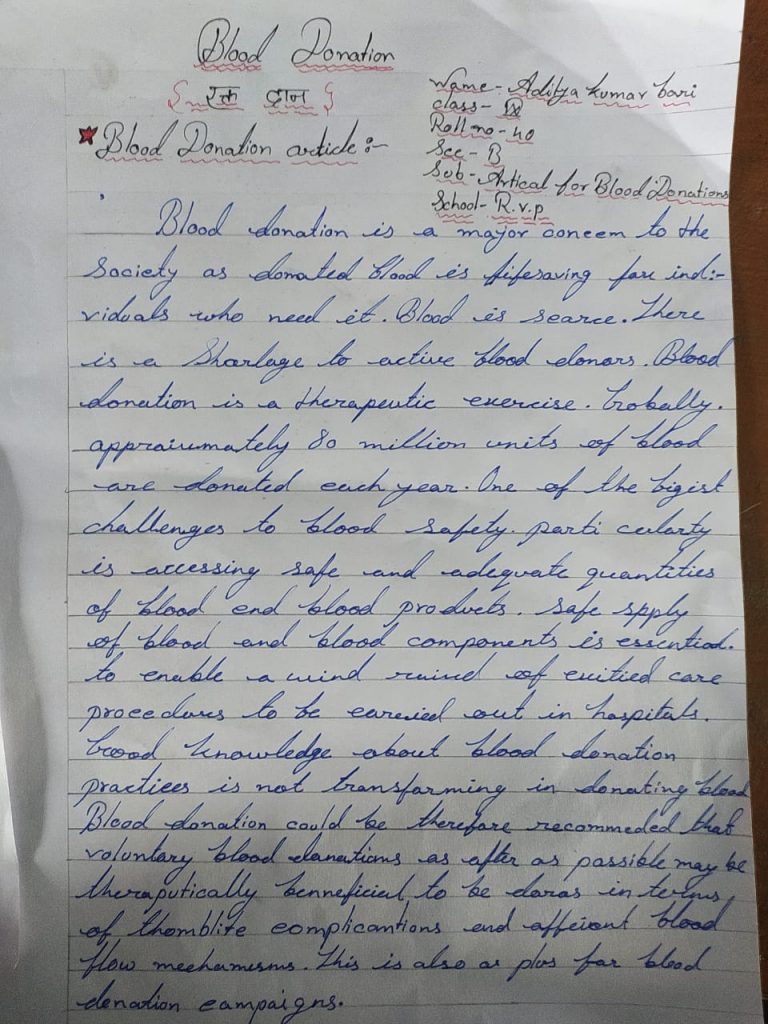 Blood Donation
{ रक्त दान }
Name - Aditya kumar bari
class - IX
Roll no - 40
Sec - B
Sub - Artical for Blood Donations
School - R.v.p
★ Blood Donation article :-
Blood donation is a major concem to the
Society as donated blood is fifesaving fore ind:-
viduals who need it. Blood is searce. There
is a Shorlage to active blood donors. Blood
donation is a therapeutic exercise. Trobally.
appraiumately 80 million units of blood
are donated each year. One of the bigist
challenges to blood safety. parti cularty
is accessing safe and adequate quantities
of blood end blood products. Safe spply
of blood and blood components is essentiod.
to enable a wind ruind of exitied care
procedures to be earried out in hospitals.
knowledge about blood donation
practices is not transforming in donating blood
Blood donation could be therefore recommeded that
voluntary blood donations as after as possible may be
theraputically benneficial to be doras in terms
of thomblite complicantions end affeient blood
flow mechamesms. This is also a plus for blood
denation campaigns.